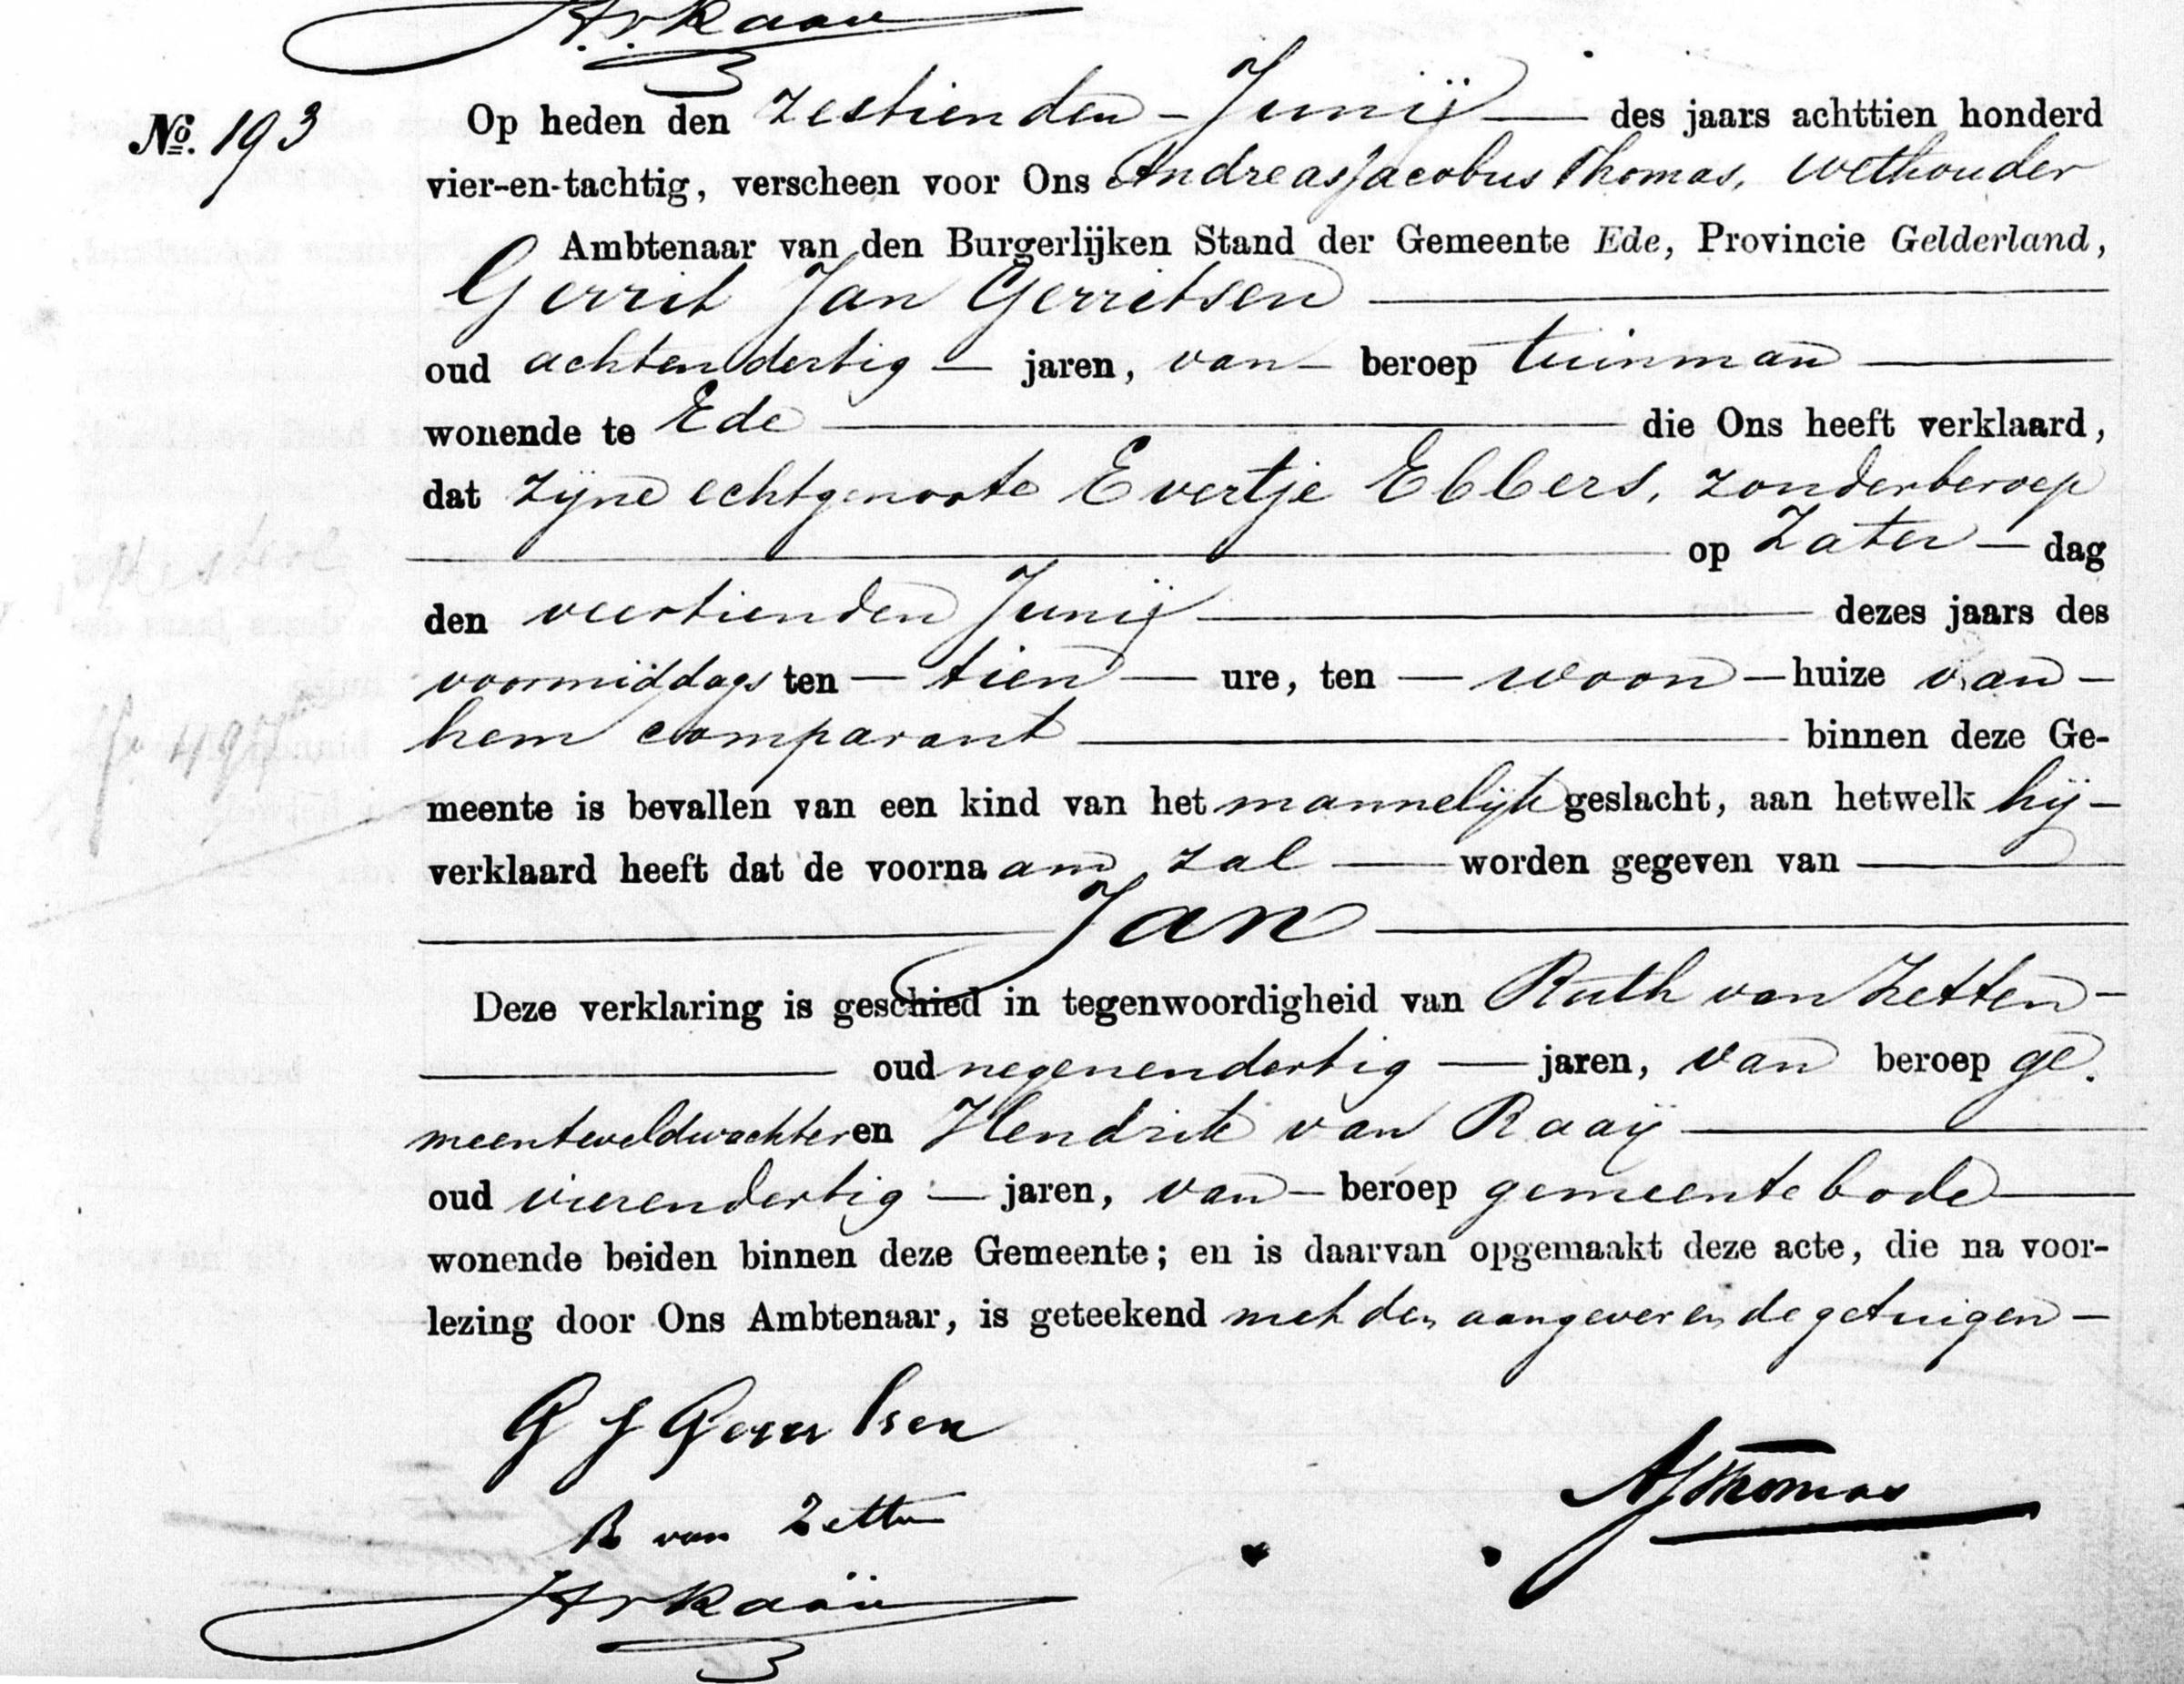 H. v. Raaij
No. 193
Op heden den zestienden - Junij — des jaars achttien honderd
vier-en-tachtig, verscheen voor Ons Andreas Jacobus Thomas, wethouder
Ambtenaar van den Burgerlijken Stand der Gemeente Ede, Provincie Gelderland,
Gerrit Jan Gerritsen —
oud achtendertig — jaren, van - beroep tuinman —
wonende te Ede — die Ons heeft verklaard,
dat zijne echtgenoote Evertje Ebbers, zonder beroep
— op Zater — dag
den veertienden Junij — dezes jaars des
voormiddags ten — tien — ure, ten — woon — huize van —
hem comparant — binnen deze Ge-
meente is bevallen van een kind van het mannelijk geslacht, aan hetwelk hij —
verklaard heeft dat de voornaam zal — worden gegeven van —
— Jan —
Deze verklaring is geschied in tegenwoordigheid van Ruth van Zetten -
— oud negenendertig — jaren, van beroep ge-
meenteveldwachter en Hendrik van Raaij —
oud vierendertig — jaren, van - beroep gemeentebode —
wonende beiden binnen deze Gemeente; en is daarvan opgemaakt deze acte, die na voor-
lezing door Ons Ambtenaar, is geteekend met den aangever en de getuigen —
G J Gerritsen
AJThomas
R van Zetten
H v Raaij